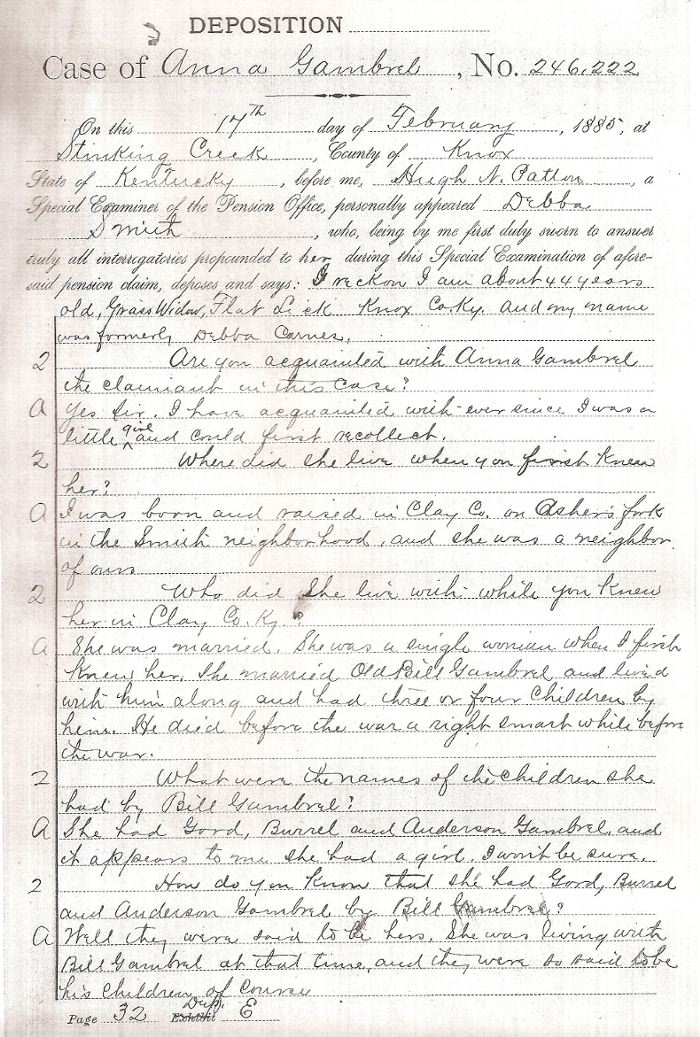 DEPOSITION
Case of Anna Gambrel, No. 246,222
On this 17th day of February, 1885, at
Stinking Creek, County of Knox
State of Kentucky, before me, Hugh N. Patton, a
Special Examiner of the Pension Office, personally appeared Debba
Smith, who, being by me first duly sworn to answer
truly all interrogatories propounded to her during this Special Examination of afore-
said pension claim, deposes and says: I reckon I am about 44 years
old, Grass Widow, Flat Lick Knox Co Ky. and my name
was formerly Debba Carnes.
2 Are you acquainted with Anna Gambrel
the claimant in this case?
A Yes Sir. I have acquainted with ever since I was a
little girl and could first recollect.
2 Where did she live when you first knew
her?
A I was born and raised in Clay Co. on Asher's fork
in the Smith neighborhood, and she was a neighbor
of ours
2 Who did she live with while you knew
her in Clay Co. Ky.?
A She was married. She was a single woman when I first
knew her. She married Old Bill Gambrel and lived
with him along and had three or four children by
him. He died before the war a right smart while before
the war.
2 What were the names of the children she
had by Bill Gambrel?
A She had Gord, Burrel and Anderson Gambrel, and
it appears to me she had a girl. I wont be sure.
2 How do you know that she had Gord, Burrel
and Anderson Gambrel by Bill Gambrel?
A Well they were said to be hers. She was living with
Bill Gambrel at that time, and they were so said to be
his children of course
Page 32 Exhibit Dep. E